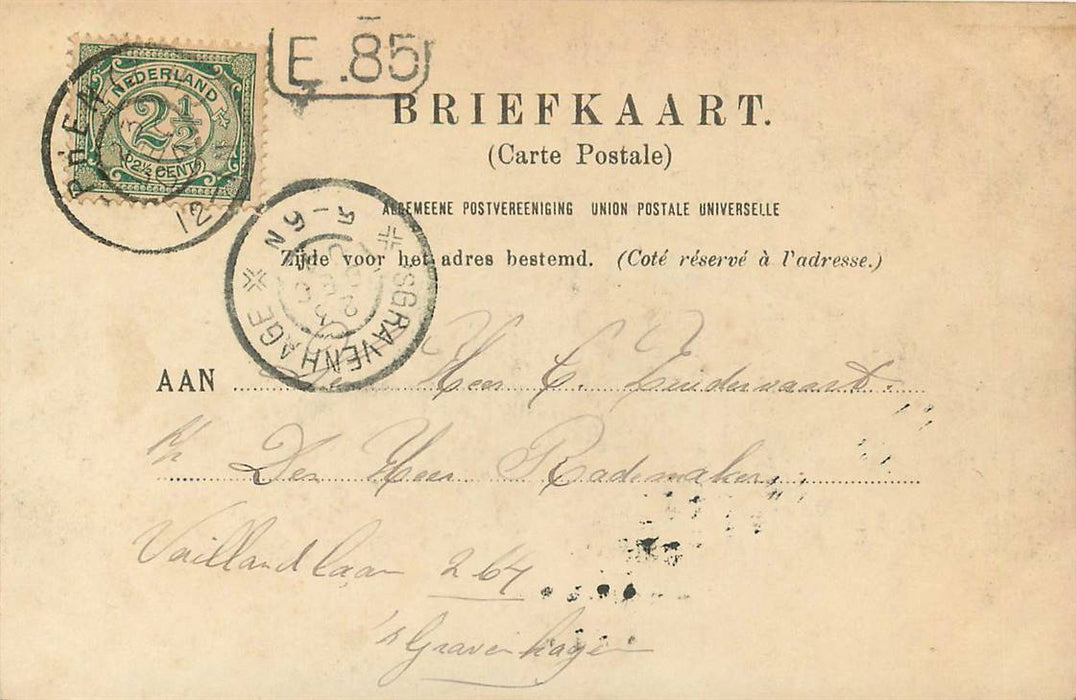 E.85
NEDERLAND
2½
2½ CENT
12
BRIEFKAART.
(Carte Postale)
ALGEMEENE POSTVEREENIGING UNION POSTALE UNIVERSELLE
Zijde voor het adres bestemd. (Coté réservé à l'adresse.)
SGRAVENHAGE
AAN Den Heer C. Zuidervaart.
Den Heer Rademaker
Vaillandlaan 264
's Gravenhage